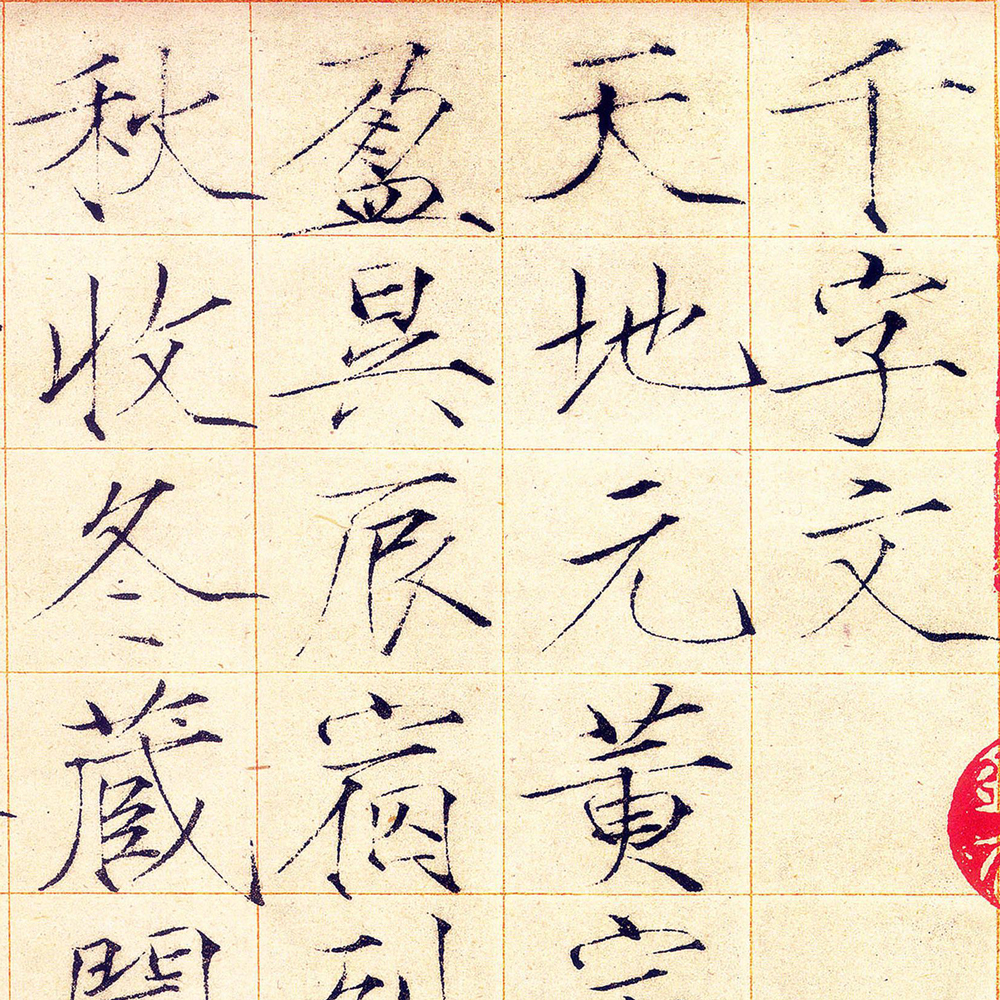 千字文
天地元黃
盈昃辰宿列
秋收冬藏